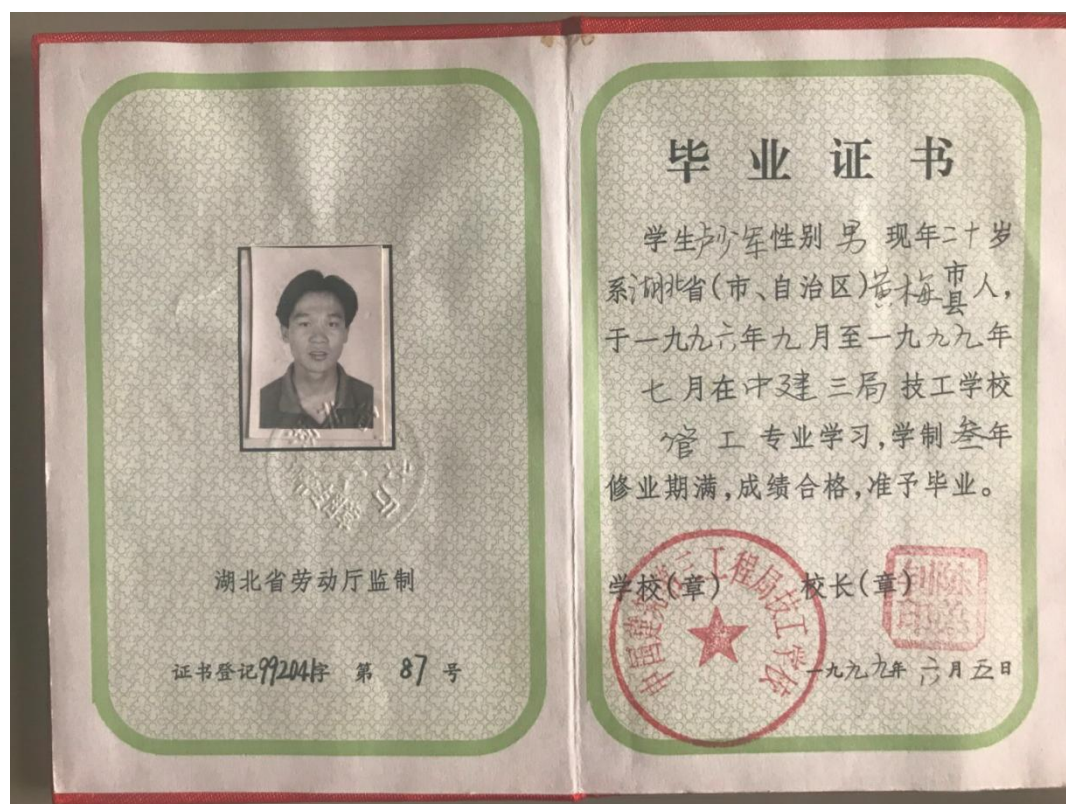 湖北省劳动厅监制
证书登记992041字 第 87 号
毕业证书
学生卢少军性别 男 现年二十岁
系湖北省(市、自治区)黄梅市县人,
于一九九六年九月至一九九九年
七月在中建三局技工学校
管工专业学习,学制叁年
修业期满,成绩合格,准予毕业。
学校(章) 校长(章)
中国建筑第三工程局技工学校
一九九九年六月五日